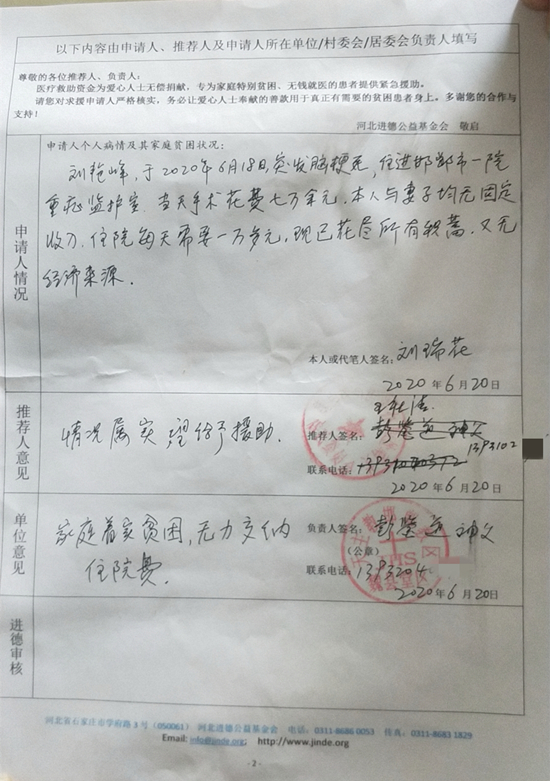 以下内容由申请人、推荐人及申请人所在单位/村委会/居委会负责人填写
尊敬的各位推荐人、负责人：
医疗救助资金为爱心人士无偿捐献，专为家庭特别贫困、无钱就医的患者提供紧急援助。
请您对求援申请人严格核实，务必让爱心人士奉献的善款用于真正有需要的贫困患者身上。多谢您的合作与
支持！
河北进德公益基金会 敬启
申请人情况
申请人个人病情及其家庭贫困状况：
刘艳峰，于2020年6月18日突发脑梗死，住进邯郸市一院
重症监护室.当天手术花费七万余元.本人与妻子均无固定
收入.住院每天需要一万多元，现已花尽所有积蓄.又无
经济来源.
本人或代笔人签名：刘瑞花
2020年6月20日
推荐人意见
情况属实 望给予援助.
推荐人签名：
联系电话：
1393102
2020年6月20日
单位意见
家庭着家贫困，无力交纳
住院费.
负责人签名：彭鉴道 神父
（公章）
联系电话：1393204
2020年6月20日
进德审核
河北省石家庄市学府路3号（050061） 河北进德公益基金会 电话：0311-8686 0053 传真：0311-8683 1829
Email: info@jinde.org; http://www.jinde.org
- 2 -